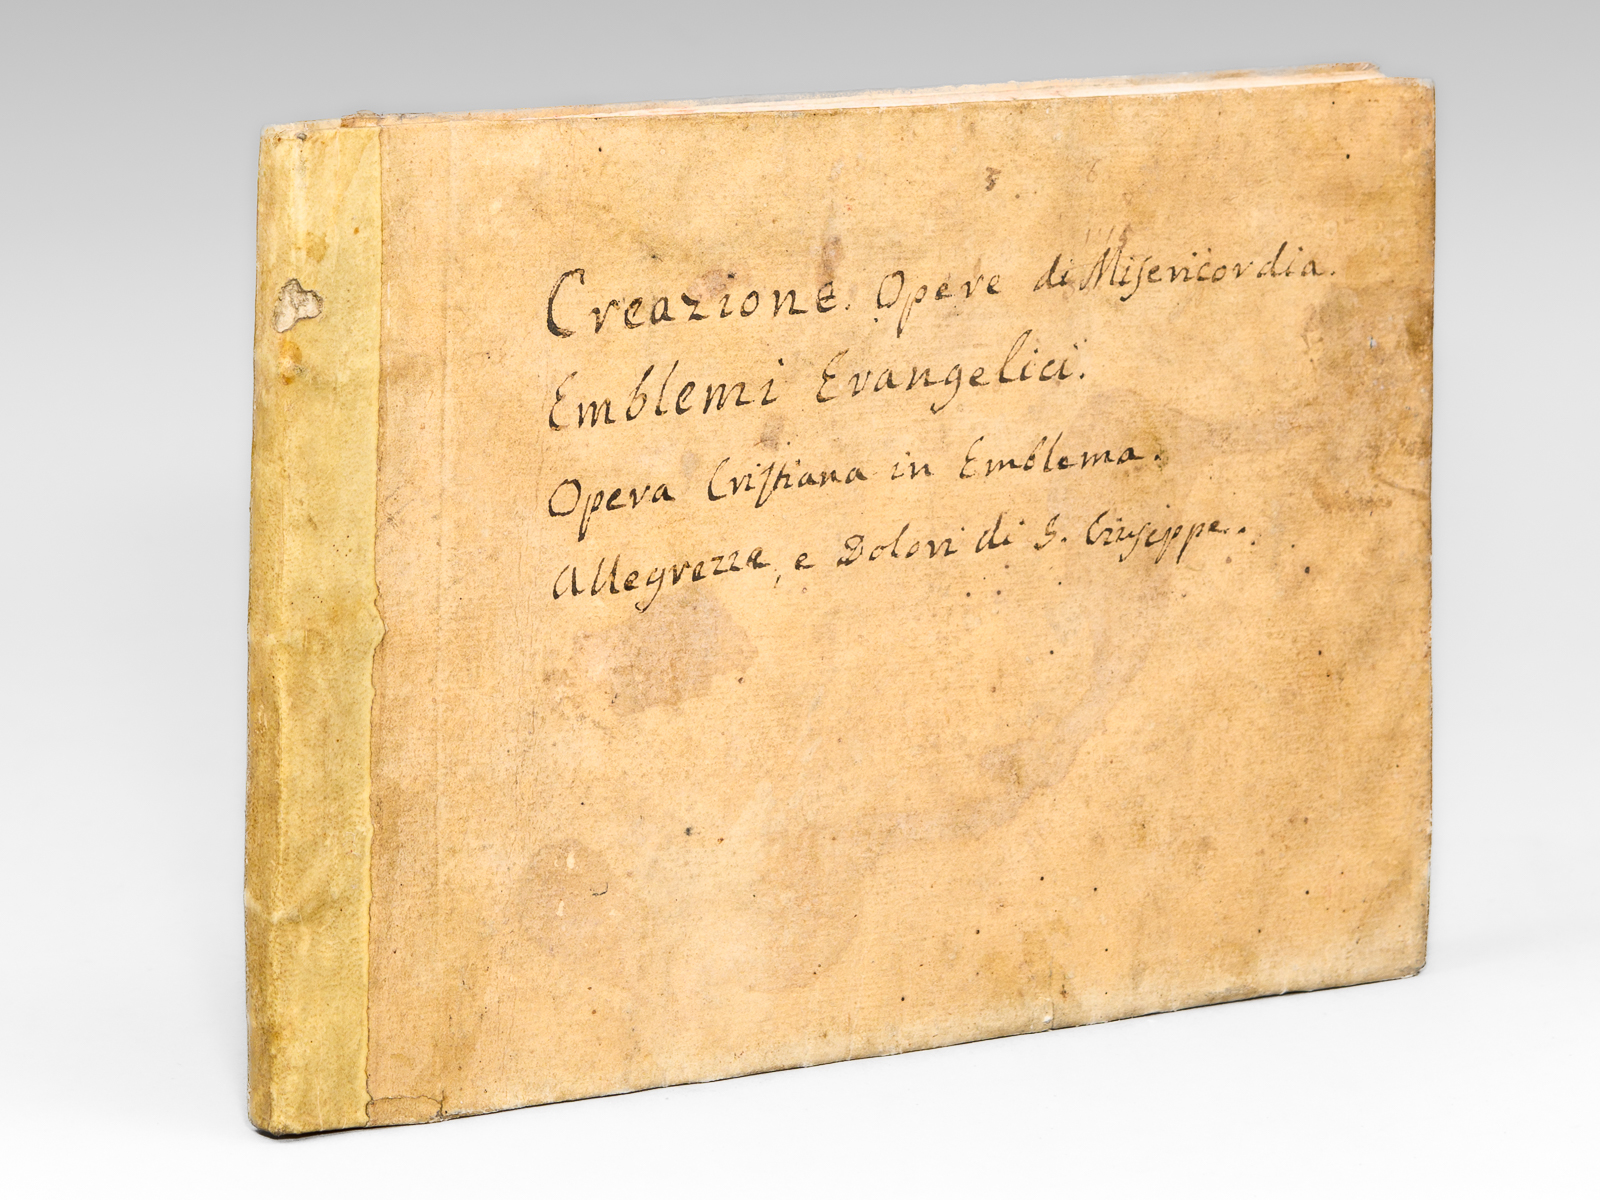 3 8
Creazione. Opere di Miſericordia.
Emblemi Evangelici.
Opera Criſtiana in Emblema.
Allegrezze, e Dolori di S. Giuſeppe.